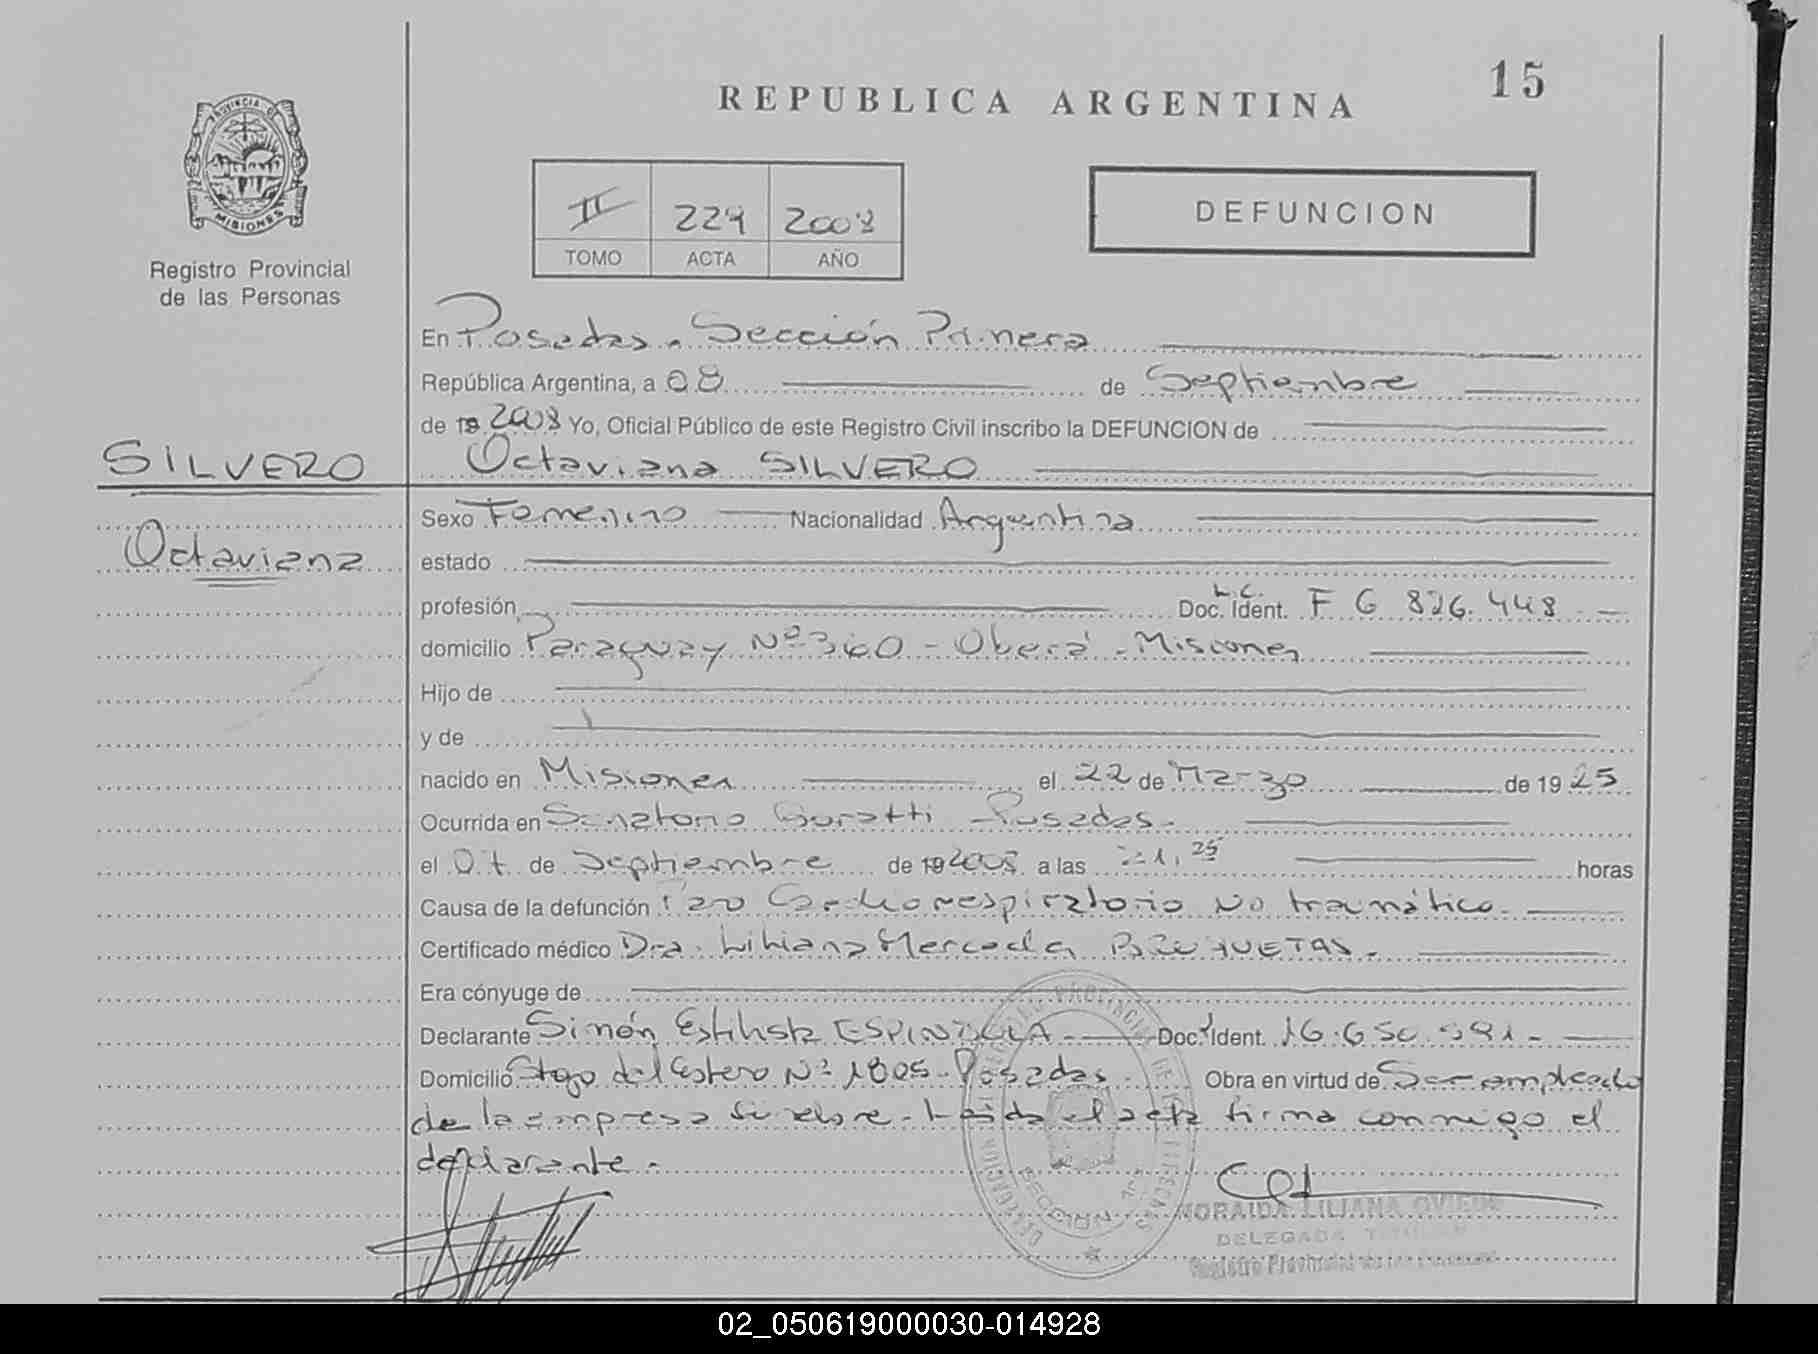 15
REPUBLICA ARGENTINA
PROVINCIA DE
MISIONES
Registro Provincial
de las Personas
II 229 2008
TOMO ACTA AÑO
DEFUNCION
En Posadas. Sección Primera
República Argentina, a 08 de Septiembre
de 19 2008 Yo, Oficial Público de este Registro Civil inscribo la DEFUNCION de
SILVERO
Octaviana SILVERO
Octaviana
Sexo Femenino Nacionalidad Argentina
estado
L.C.
profesión Doc. Ident. F 6 826.448
domicilio Paraguay Nº 360 - Oberá - Misiones
Hijo de
y de
nacido en Misiones el 22 de Marzo de 1925
Ocurrida en Sanatorio Boratti - Posadas.
el 07 de Septiembre de 19 2008 a las 21,25 horas
Causa de la defunción Paro Cardiorrespiratorio No traumático.
Certificado médico Dra. Liliana Mercedes
Era cónyuge de
Declarante Simón Estilisla ESPINDOLA Doc. Ident. 16.650.591 -
Domicilio Stgo del Estero Nº 1805 - Posadas Obra en virtud de Ser empleado
de la empresa - Leida el acta firma conmigo el
declarante.
NORAIDA LILIANA OVIEDO
DELEGADA TITULAR
Registro Provincial de las Personas
02_050619000030-014928